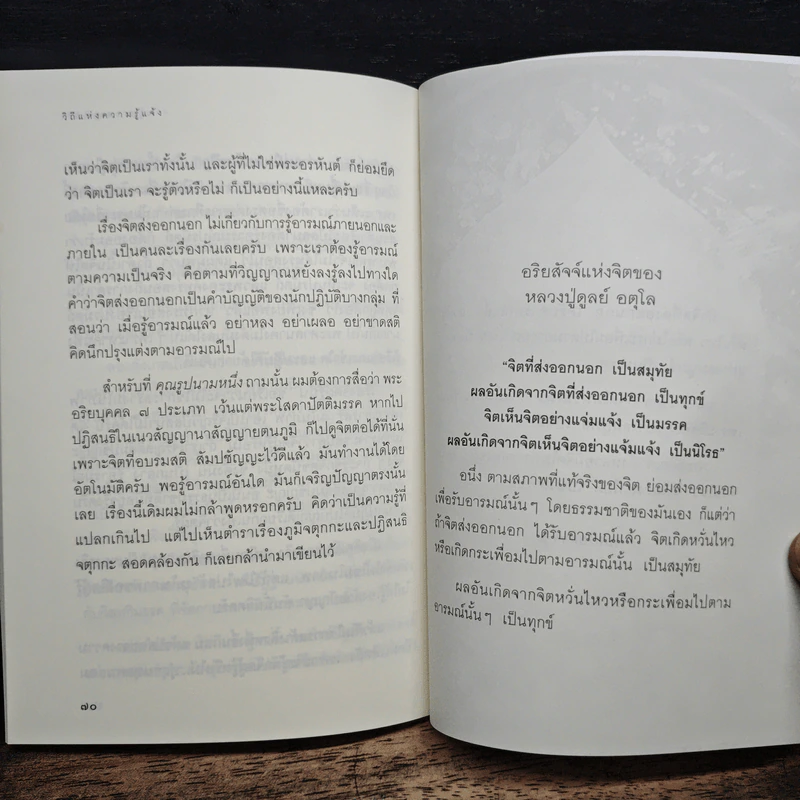 วิถีแห่งความรู้แจ้ง
เห็นว่าจิตเป็นเราทั้งนั้น และผู้ที่ไม่ใช่พระอรหันต์ ก็ย่อมยึด
ว่า จิตเป็นเรา จะรู้ตัวหรือไม่ ก็เป็นอย่างนี้แหละครับ
เรื่องจิตส่งออกนอก ไม่เกี่ยวกับการรู้อารมณ์ภายนอกและ
ภายใน เป็นคนละเรื่องกันเลยครับ เพราะเราต้องรู้อารมณ์
ตามความเป็นจริง คือตามที่วิญญาณหยั่งลงรู้ลงไปทางใด
คำว่าจิตส่งออกนอกเป็นคำบัญญัติของนักปฏิบัติบางกลุ่ม ที่
สอนว่า เมื่อรู้อารมณ์แล้ว อย่าหลง อย่าเผลอ อย่าขาดสติ
คิดนึกปรุงแต่งตามอารมณ์ไป
สำหรับที่ คุณรูปนามหนึ่ง ถามนั้น ผมต้องการสื่อว่า พระ
อริยบุคคล ๗ ประเภท เว้นแต่พระโสดาปัตติมรรค หากไป
ปฏิสนธิในเนวสัญญานาสัญญายตนภูมิ ก็ไปดูจิตต่อได้ที่นั่น
เพราะจิตที่อบรมสติ สัมปชัญญะไว้ดีแล้ว มันทำงานได้โดย
อัตโนมัติครับ พอรู้อารมณ์อันใด มันก็เจริญปัญญาตรงนั้น
เลย เรื่องนี้เดิมผมไม่กล้าพูดหรอกครับ คิดว่าเป็นความรู้ที่
แปลกเกินไป แต่ไปเห็นตำราเรื่องภูมิจตุกกะและปฏิสนธิ
จตุกกะ สอดคล้องกัน ก็เลยกล้านำมาเขียนไว้
๗๐
อริยสัจจ์แห่งจิตของ
หลวงปู่ดูลย์ อตุโล
“จิตที่ส่งออกนอก เป็นสมุทัย
ผลอันเกิดจากจิตที่ส่งออกนอก เป็นทุกข์
จิตเห็นจิตอย่างแจ่มแจ้ง เป็นมรรค
ผลอันเกิดจากจิตเห็นจิตอย่างแจ่มแจ้ง เป็นนิโรธ”
อนึ่ง ตามสภาพที่แท้จริงของจิต ย่อมส่งออกนอก
เพื่อรับอารมณ์นั้นๆ โดยธรรมชาติของมันเอง ก็แต่ว่า
ถ้าจิตส่งออกนอก ได้รับอารมณ์แล้ว จิตเกิดหวั่นไหว
หรือเกิดกระเพื่อมไปตามอารมณ์นั้น เป็นสมุทัย
ผลอันเกิดจากจิตหวั่นไหวหรือกระเพื่อมไปตาม
อารมณ์นั้นๆ เป็นทุกข์